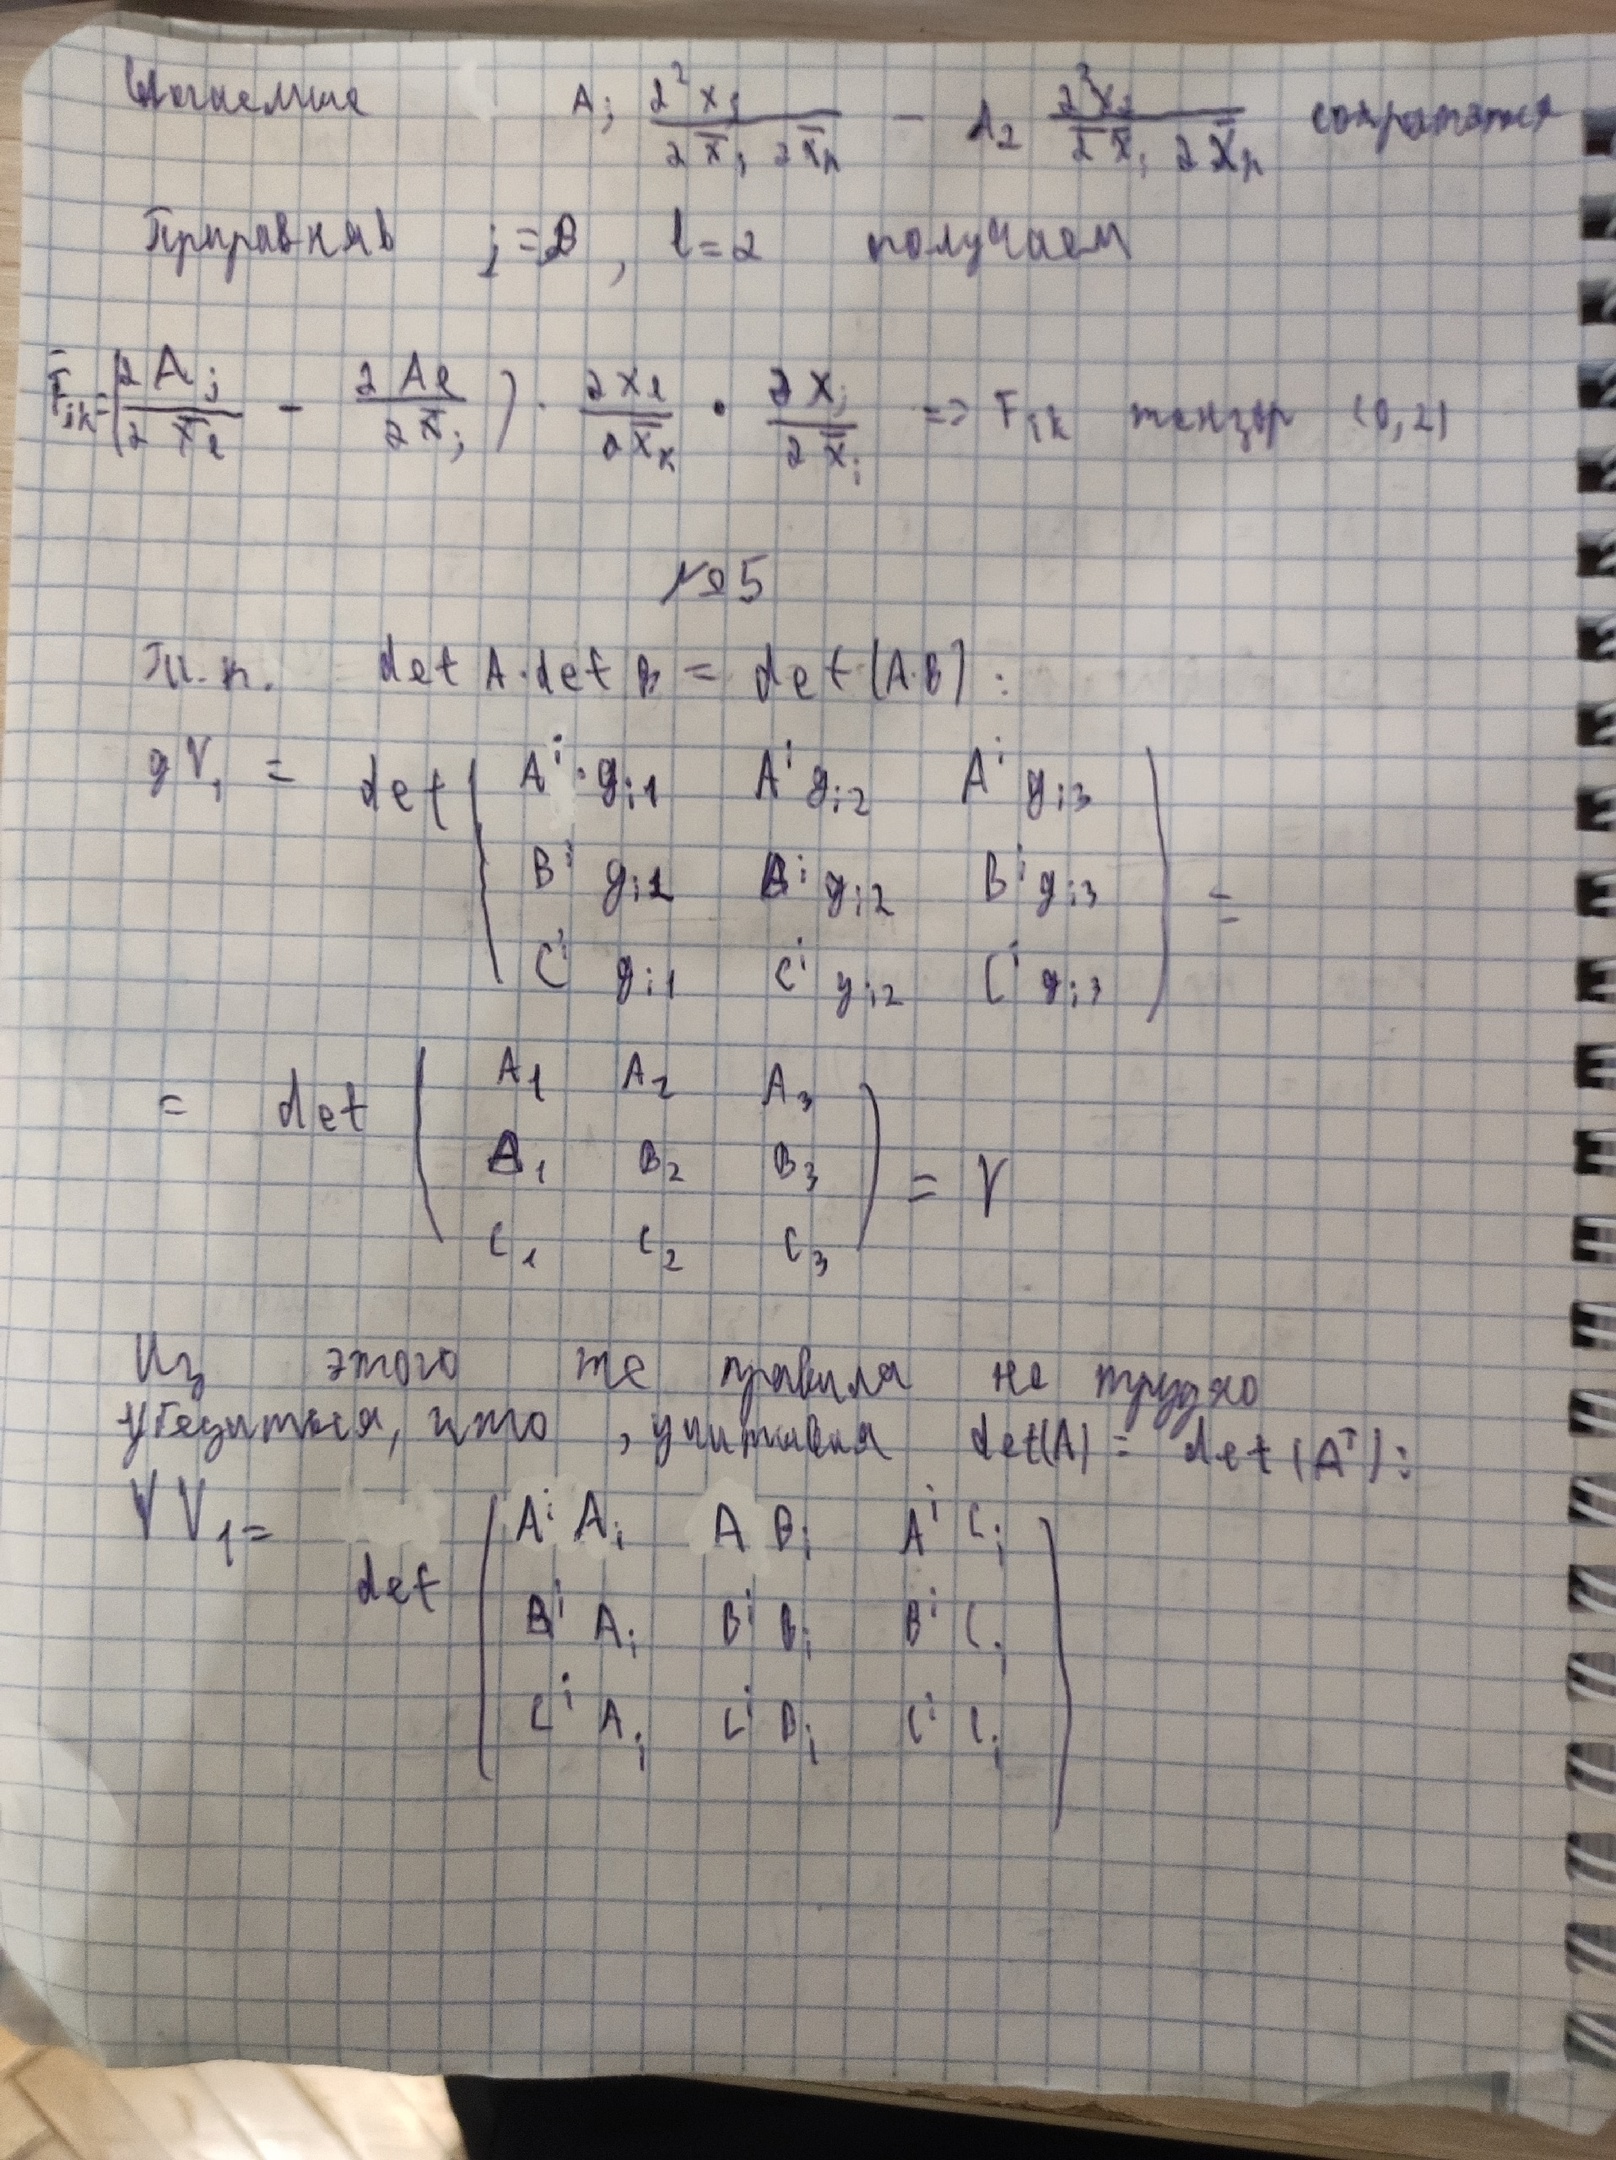 Слагаемые A_j ∂²x_j / ∂x̄_i ∂x̄_k − A_2 ∂²x_2 / ∂x̄_i ∂x̄_k сократятся
Приравняв j=2, l=2 получаем
F̄_ik = (∂A_j / ∂x̄_l − ∂A_l / ∂x̄_j) · ∂x_l / ∂x̄_k · ∂x_j / ∂x̄_i => F_ik тензор (0,2)
№5
Т.к. det A · det B = det (A·B) :
gV_1 = det ( A^i · g_i1 A^i g_i2 A^i g_i3
B^i g_i1 B^i g_i2 B^i g_i3
C^i g_i1 C^i g_i2 C^i g_i3 ) =
= det ( A_1 A_2 A_3
B_1 B_2 B_3
C_1 C_2 C_3 ) = V
Из этого же правила не трудно
убедиться, что , учитывая det(A) = det (A^T) :
V V_1 = det ( A^i A_i A B_i A^i C_i
B^i A_i B^i B_i B^i C_i
C^i A_i C^i B_i C^i C_i )